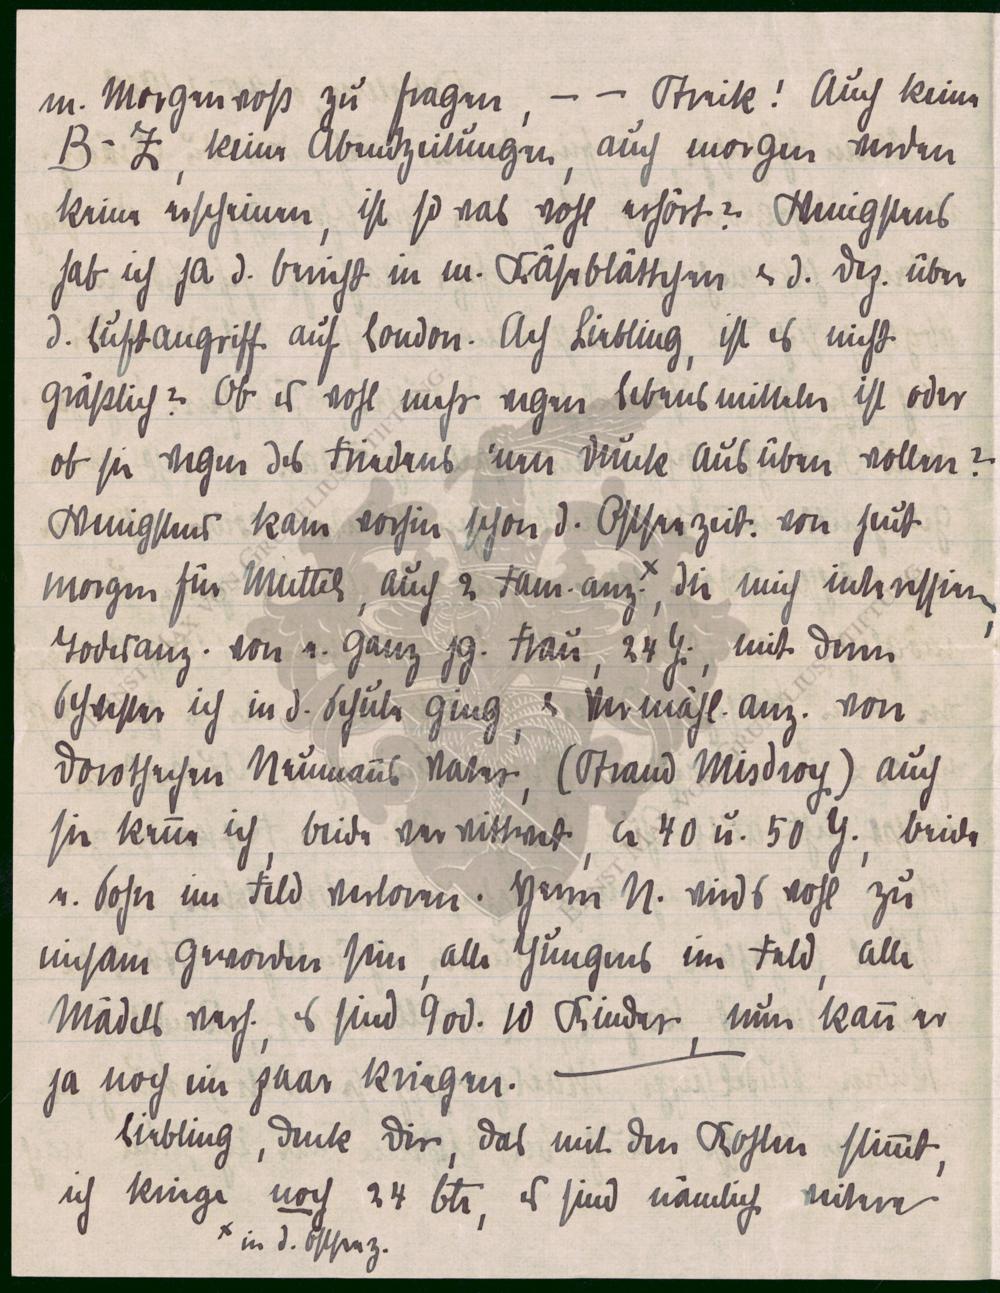 m. Morgenvoß zu fragen, – – Streik! Auch keine
B-Z, keine Abendzeitungen, auch morgen werden
keine erscheinen, ist so was wohl erhört? Wenigstens
hab ich ja d. Bericht in m. Käseblättchen u d. Dez. über
d. Luftangriff auf London. Ach Liebling, ist es nicht
gräßlich? Ob es wohl mehr wegen Lebensmitteln ist oder
ob sie wegen des Friedens 'nen Druck ausüben wollen?
Wenigstens kam vorhin schon d. Ostseezeit. von heut
morgen für Muttel, auch 2 Fam.anz.ˣ, die mich interessieren,
Todesanz. von e. ganz jg. Frau, 24 J., mit deren
Schwester ich in d. Schule ging, u Vermähl.anz. von
Dorothechen Neumanns Vater, (Strand Misdroy) auch
sie kenne ich, beide verwitwet, ca 40 u. 50 J., beide
e. Sohn im Feld verloren. Herrn N. wirds wohl zu
einsam geworden sein, alle Jungens im Feld, alle
Mädels verh., es sind 9 od. 10 Kinder, nun kann er
ja noch ein paar kriegen.
Liebling, denk Dir, das mit den Kohlen stimmt,
ich kriege noch 24 Ctr, es sind nämlich weitere
ˣ in d. Ostseez.